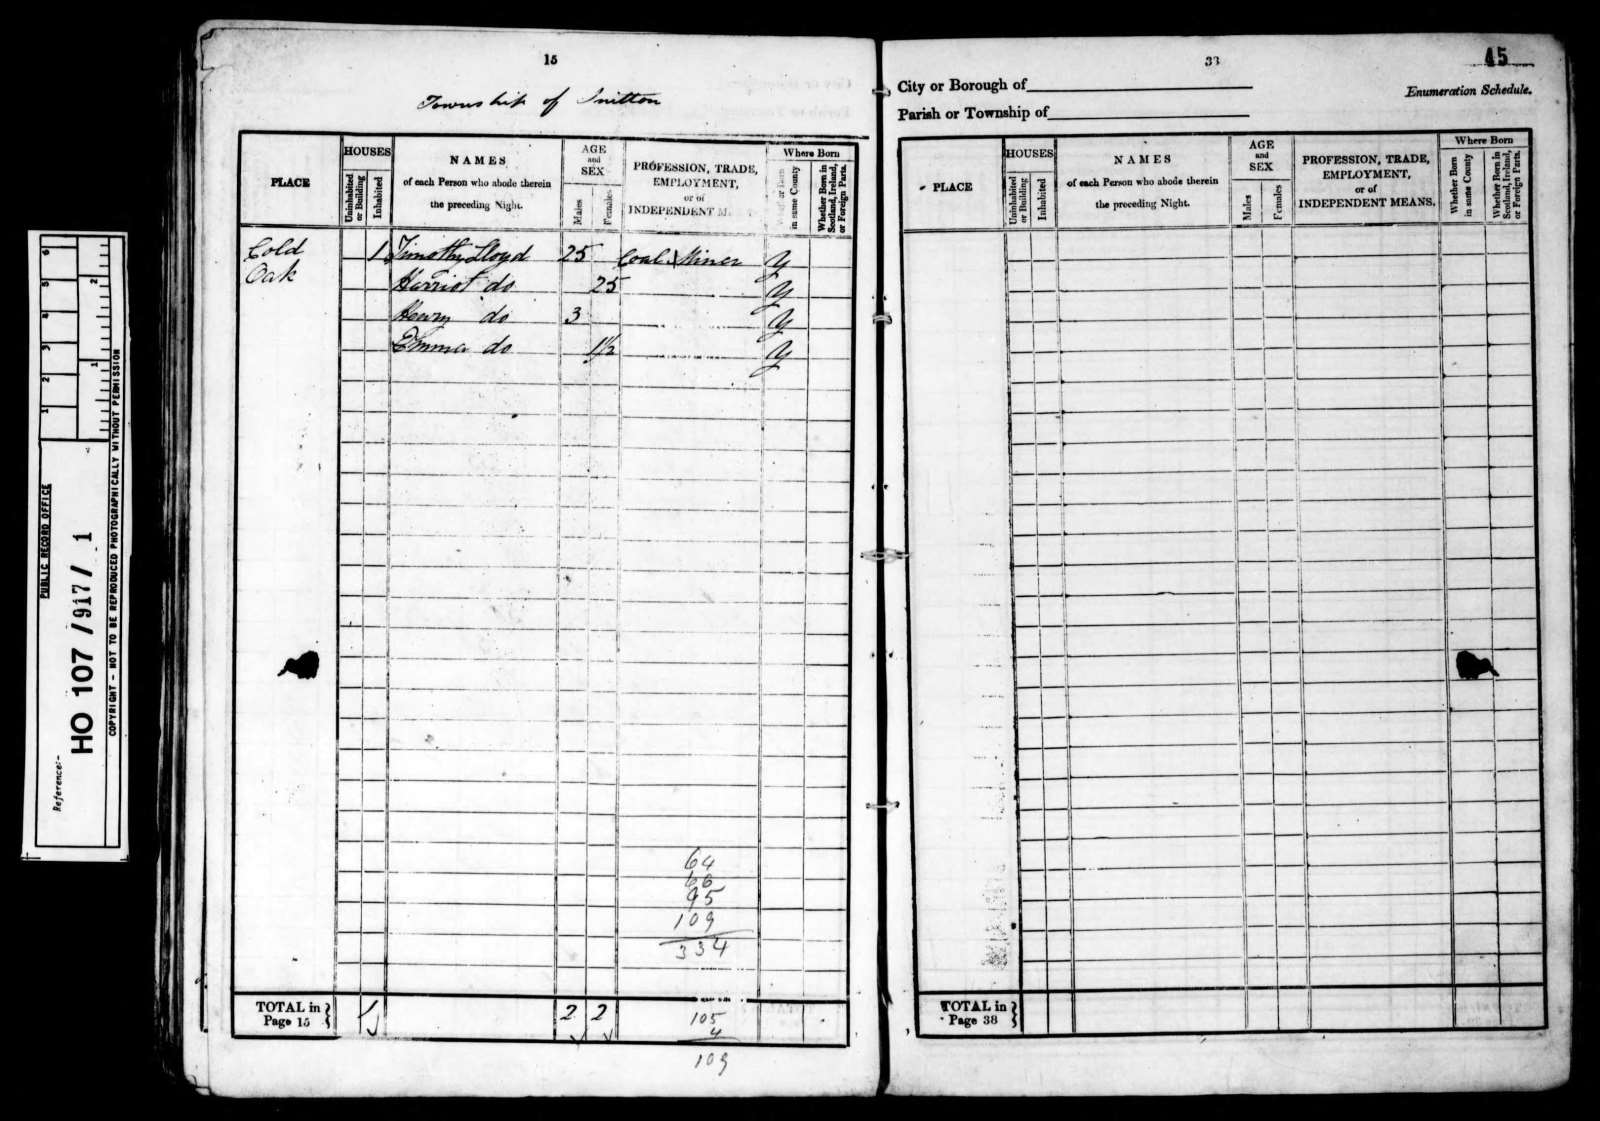 15
Township of Snitton
PLACE
HOUSES
Uninhabited or Building
Inhabited
NAMES
of each Person who abode therein
the preceding Night.
AGE
and
SEX
Males
Females
PROFESSION, TRADE,
EMPLOYMENT,
or of
INDEPENDENT
Where Born
in same County
Whether Born in Scotland, Ireland, or Foreign Parts.
Cold 1 Timothy Lloyd 25 Coal Miner y
Oak Harriot do 25 y
Henry do 3 y
Emma do 1½ y
64
66
95
109
334
TOTAL in
Page 15
1 2 2
105
4
109
45
33
City or Borough of
Enumeration Schedule.
Parish or Township of
PLACE
HOUSES
Uninhabited or Building
Inhabited
NAMES
of each Person who abode therein
the preceding Night.
AGE
and
SEX
Males
Females
PROFESSION, TRADE,
EMPLOYMENT,
or of
INDEPENDENT MEANS.
Where Born
Whether Born in same County
Whether Born in Scotland, Ireland, or Foreign Parts.
TOTAL in
Page 33
1 2 3 4 5 6
1 2
PUBLIC RECORD OFFICE
Reference:-
HO 107 / 917 / 1
COPYRIGHT - NOT TO BE REPRODUCED PHOTOGRAPHICALLY WITHOUT PERMISSION